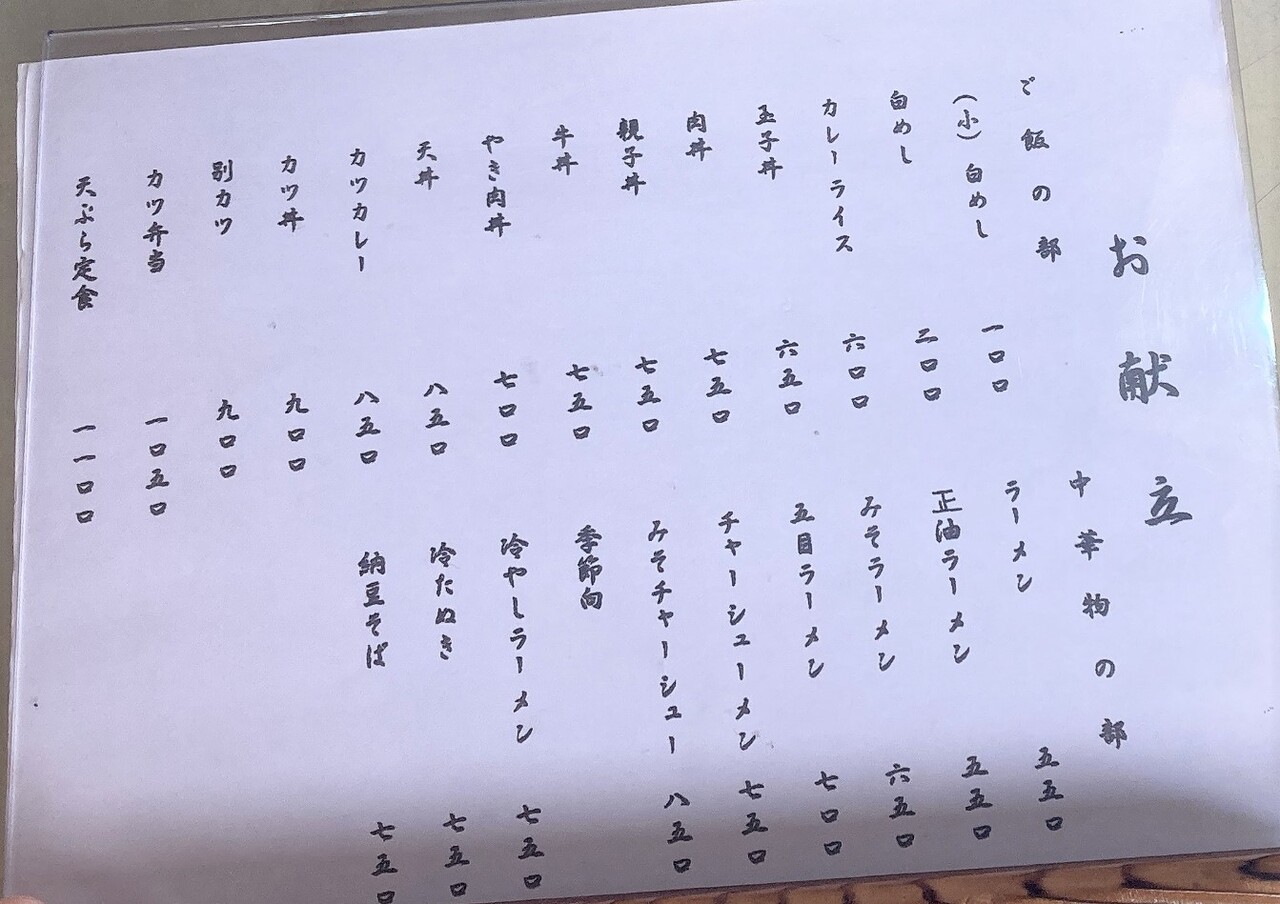 お献立
ご飯の部
(小)白めし 一〇〇
白めし 二〇〇
カレーライス 六〇〇
玉子丼 六五〇
肉丼 七五〇
親子丼 七五〇
牛丼 七五〇
やき肉丼 七〇〇
天丼 八五〇
カツカレー 八五〇
カツ丼 九〇〇
別カツ 九〇〇
カツ弁当 一〇五〇
天ぷら定食 一一〇〇
中華物の部
ラーメン 五五〇
正油ラーメン 五五〇
みそラーメン 六五〇
五目ラーメン 七〇〇
チャーシューメン 七五〇
みそチャーシュー 八五〇
季節向
冷やしラーメン 七五〇
冷たぬき 七五〇
納豆そば 七五〇